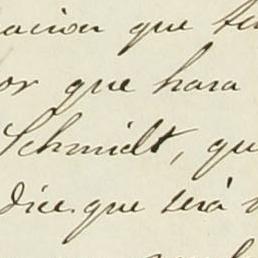 acion que te
or que hara
Schmidt, qu
dice que será